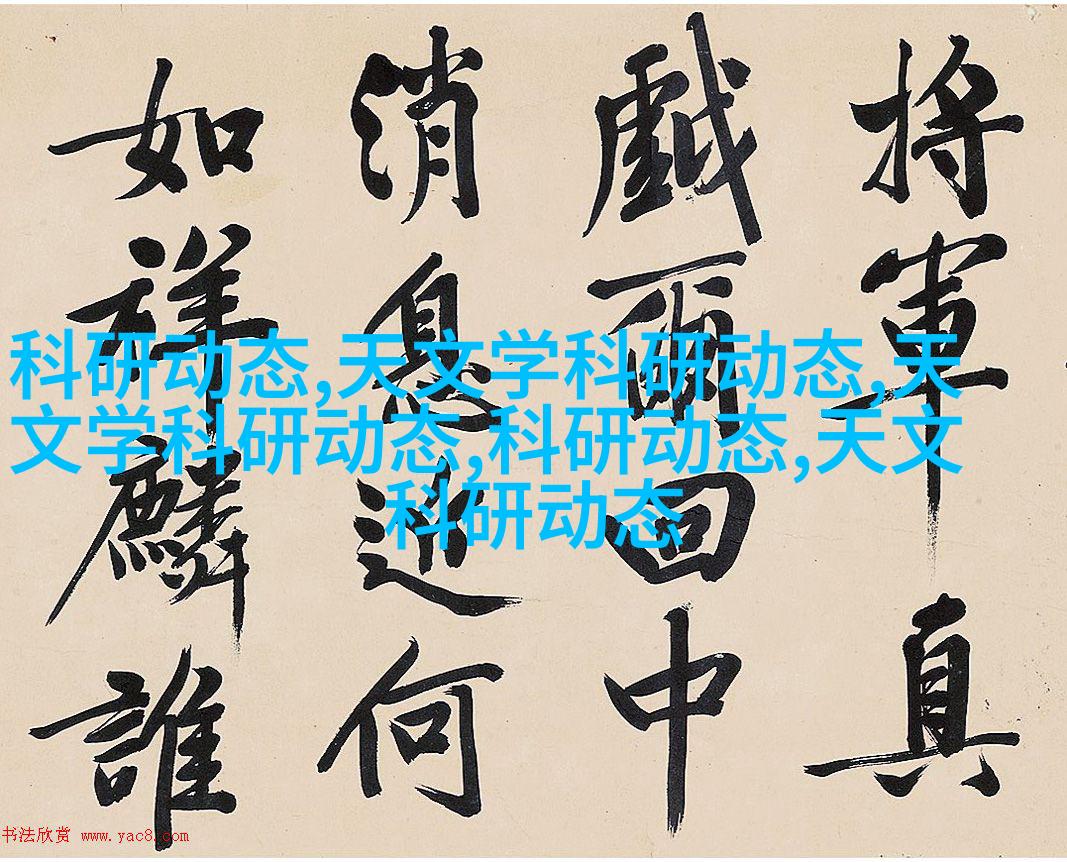 将軍真
戯爾回中
消息近何
如祥麟誰
科研动态,天文学科研动态,天
文学科研动态,科研动态,天文
科研动态
书法欣赏 www.yac8.com